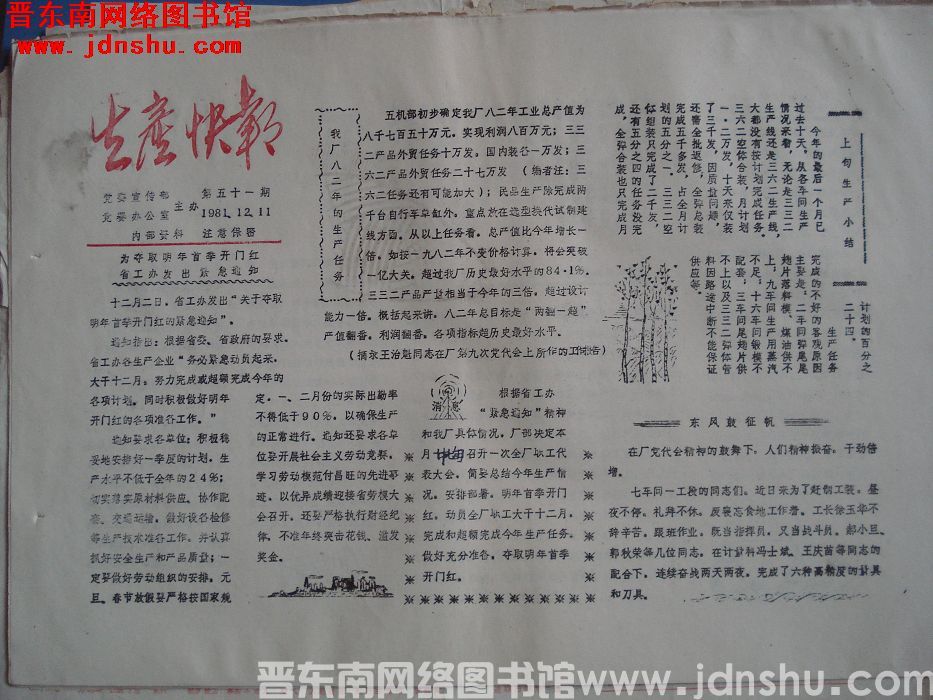 晋东南网络图书馆
www.jdnshu.com
生产快报
党委宣传部
党委办公室
主办
第五十一期
1981.12.11
内部资料 注意保密
为夺取明年首季开门红
省工办发出紧急通知
十二月二日，省工办发出“关于夺取
明年首季开门红的紧急通知”。
通知指出：根据省委、省政府的要求，
省工办各生产企业“务必紧急动员起来，
大干十二月；努力完成或超额完成今年的
各项计划，同时积极做好明年
开门红的各项准备工作。”
通知要求各单位：积极稳
妥地安排好一季度的计划，生
产水平不低于全年的24%；
切实落实原材料供应、协作配
套、交通运输，做好设备检修
等生产技术准备工作。并认真
抓好安全生产和产品质量；一
定要做好劳动组织的安排，元
旦、春节放假要严格按国家规
定，一、二月份的实际出勤率
不得低于90%，以确保生产
的正常进行。通知还要求各单
位要开展社会主义劳动竞赛，
学习劳动模范付昌旺的先进事
迹，以优异成绩迎接省劳模大
会召开。还要严格执行财经纪
律，不准年终突击花钱、滥发
奖金。
我厂八二年的生产任务
五机部初步确定我厂八二年工业总产值为
八千七百五十万元，实现利润八百万元；三三
二产品外贸任务十万发，国内装备一万发；三
六二产品外贸任务二十七万发（编者注：三
六二任务还有可能加大）；民品生产除完成两
千台自行车草缸外，重点放在造型换代试制建
线方面。从以上任务看，总产值比今年增长一
倍，如按一九八二年不变价格计算，将会突破
一亿大关，超过我厂历史最好水平的84.1%。
三三二产品产量相当于今年的三倍，超过设计
能力一倍。概括起来讲，八二年总目标是“两翻一超”
产值翻番，利润翻番，各项指标超历史最好水平。
（摘录王治魁同志在厂第九次党代会上所作的工作报告）
消息
根据省工办
“紧急通知”精神
和我厂具体情况，厂部决定本
月中旬召开一次全厂职工代
表大会，简要总结今年生产情
况，安排部署，明年首季开门
红，动员全厂职工大干十二月，
完成和超额完成今年生产任务，
做好充分准备，夺取明年首季
开门红。
上旬生产小结
今年的最后一个月已
过去十天，从各车间生产
情况来看，无论是三三二
生产线还是三六二生产线，
大都没有按计划完成任务。
三六二空体合装，月计划
一·二万发，十天来仅装
了三千发，因质量问题，
还需全批返修，全弹总装
完成五千多发，占全月计
划的五分之一。三三二空
体组装只完成了二千发，
还有五分之四的任务没完
成，全弹合装也只完成月
计划的百分之
二十四。
生产任务
完成的不好的客观原因
主要是，二车间弹尾
翅片落料模、煤油供不
上，九车间生产用蒸汽
不足，十六车间锻模不
配套，三车间尾翅片供
不上以及三三二弹体管
料因路途中断不能保证
供应等。
东风鼓征帆
在厂党代会精神的鼓舞下，人们精神振奋，干劲倍
增。
七车间一工段的同志们，近日来为了赶制工装，昼
夜不停，礼拜不休，废寝忘食地工作着。工长徐玉华不
辞辛苦，跟班作业，既当指挥员，又当战斗员，郝小旦、
郭秋荣等几位同志，在计量科冯士斌、王庆苗等同志的
配合下，连续奋战两天两夜，完成了六种高精度的量具
和刀具。
晋东南网络图书馆 www.jdnshu.com